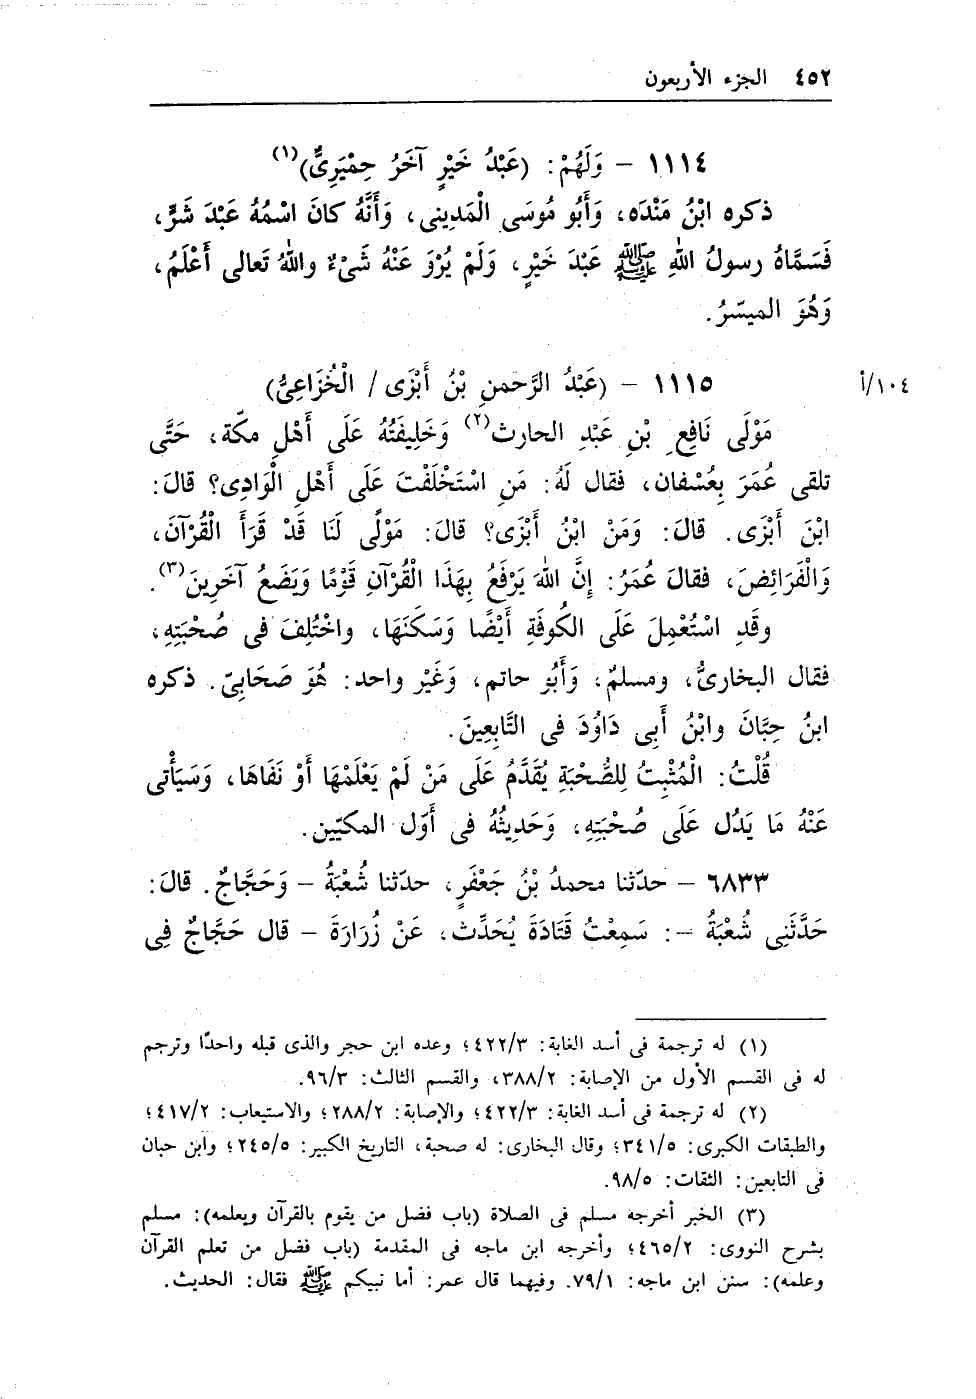 ٤٥٢ الجزء الأربعون
١١١٤ - وَلَهُمْ: (عَبْدُ خَيْرٍ آخَرُ حِمْيَرِىٌّ)(١)
ذكره ابْنُ مَنْدَه، وَأَبُو مُوسَى الْمَدِينى، وَأَنَّهُ كانَ اسْمُهُ عَبْدَ شَرٍّ،
فَسَمَّاهُ رسولُ اللهِ ﷺ عَبْدَ خَيْرٍ، وَلَمْ يُرْوَ عَنْهُ شَىْءٌ واللهُ تَعالى أَعْلَمُ،
وَهُوَ الميسّرُ.
١١١٥ - (عَبْدُ الرَّحمنِ بْنُ أَبْزَى / الْخُزَاعِىُّ)
١٠٤/أ
مَوْلَى نَافِعِ بْنِ عَبْدِ الحارث(٢) وَخَلِيفَتُهُ عَلَى أَهْلِ مكّة، حَتَّى
تلقى عُمَرَ بِعُسْفان، فقال لَهُ: مَنِ اسْتَخْلَفْتَ عَلَى أَهْلِ الْوَادِى؟ قالَ:
ابْنَ أَبْزَى. قالَ: وَمَنْ ابْنُ أَبْزَى؟ قالَ: مَوْلًى لَنَا قَدْ قَرَأَ الْقُرْآنَ،
وَالْفَرَائِضَ، فقالَ عُمَرُ: إِنَّ اللهَ يَرْفَعُ بِهَذَا الْقُرْآنِ قَوْمًا وَيَضَعُ آخَرِينَ(٣).
وقَدِ اسْتُعْمِلَ عَلَى الكُوفَةِ أَيْضًا وَسَكَنَهَا، واخْتُلِفَ فى صُحْبَتِهِ،
فقال البخارىُّ، ومسلمٌ، وَأَبُو حاتم، وَغَيْر واحد: هُوَ صَحَابِىّ. ذكره
ابنُ حِبَّانَ وابْنُ أَبِى دَاوُدَ فى التَّابِعِينَ.
قُلْتُ: الْمُثْبِتُ لِلصُّحْبَةِ يُقَدَّمُ عَلَى مَنْ لَمْ يَعْلَمْهَا أَوْ نَفَاهَا، وَسَيَأْتى
عَنْهُ مَا يَدُل عَلَى صُحْبَتِهِ، وَحَدِيثُهُ فى أَوّل المكيّين.
٦٨٣٣ - حدّثنا محمدُ بْنُ جَعْفَرٍ، حدّثنا شُعْبَةُ - وَحَجَّاجٌ. قالَ:
حَدَّثَنِى شُعْبَةُ -: سَمِعْتُ قَتَادَةَ يُحَدِّث، عَنْ زُرَارَةَ - قال حَجَّاجٌ فِى
(١) له ترجمة فى أسد الغابة: ٤٢٢/٣؛ وعده ابن حجر والذى قبله واحدًا وترجم
له فى القسم الأول من الإصابة: ٣٨٨/٢، والقسم الثالث: ٩٦/٣.
(٢) له ترجمة فى أسد الغابة: ٤٢٢/٣؛ والإصابة: ٢٨٨/٢؛ والاستيعاب: ٤١٧/٢؛
والطبقات الكبرى: ٣٤١/٥؛ وقال البخارى: له صحبة، التاريخ الكبير: ٢٤٥/٥؛ وابن حبان
فى التابعين: الثقات: ٩٨/٥.
(٣) الخبر أخرجه مسلم فى الصلاة (باب فضل من يقوم بالقرآن ويعلمه): مسلم
بشرح النووى: ٤٦٥/٢؛ وأخرجه ابن ماجه فى المقدمة (باب فضل من تعلم القرآن
وعلمه): سنن ابن ماجه: ٧٩/١. وفيهما قال عمر: أما نبيكم ﷺ فقال: الحديث.